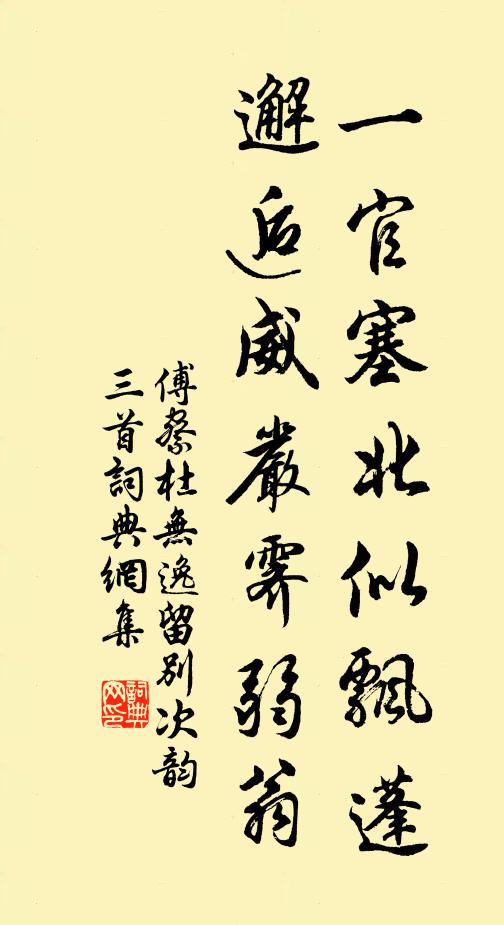 一官塞北似飄蓬
邂逅威嚴霽弱翁
傅察杜無逸留別次韵
三首詞典網集
詞典网印